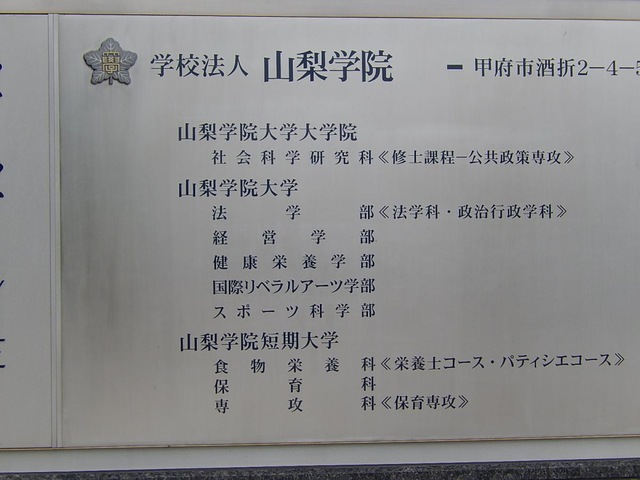 学校法人 山梨学院 ー 甲府市酒折2-4-5
山梨学院大学大学院
社会科学研究科《修士課程-公共政策専攻》
山梨学院大学
法学部《法学科・政治行政学科》
経営学部
健康栄養学部
国際リベラルアーツ学部
スポーツ科学部
山梨学院短期大学
食物栄養科《栄養士コース・パティシエコース》
保育科
専攻科《保育専攻》